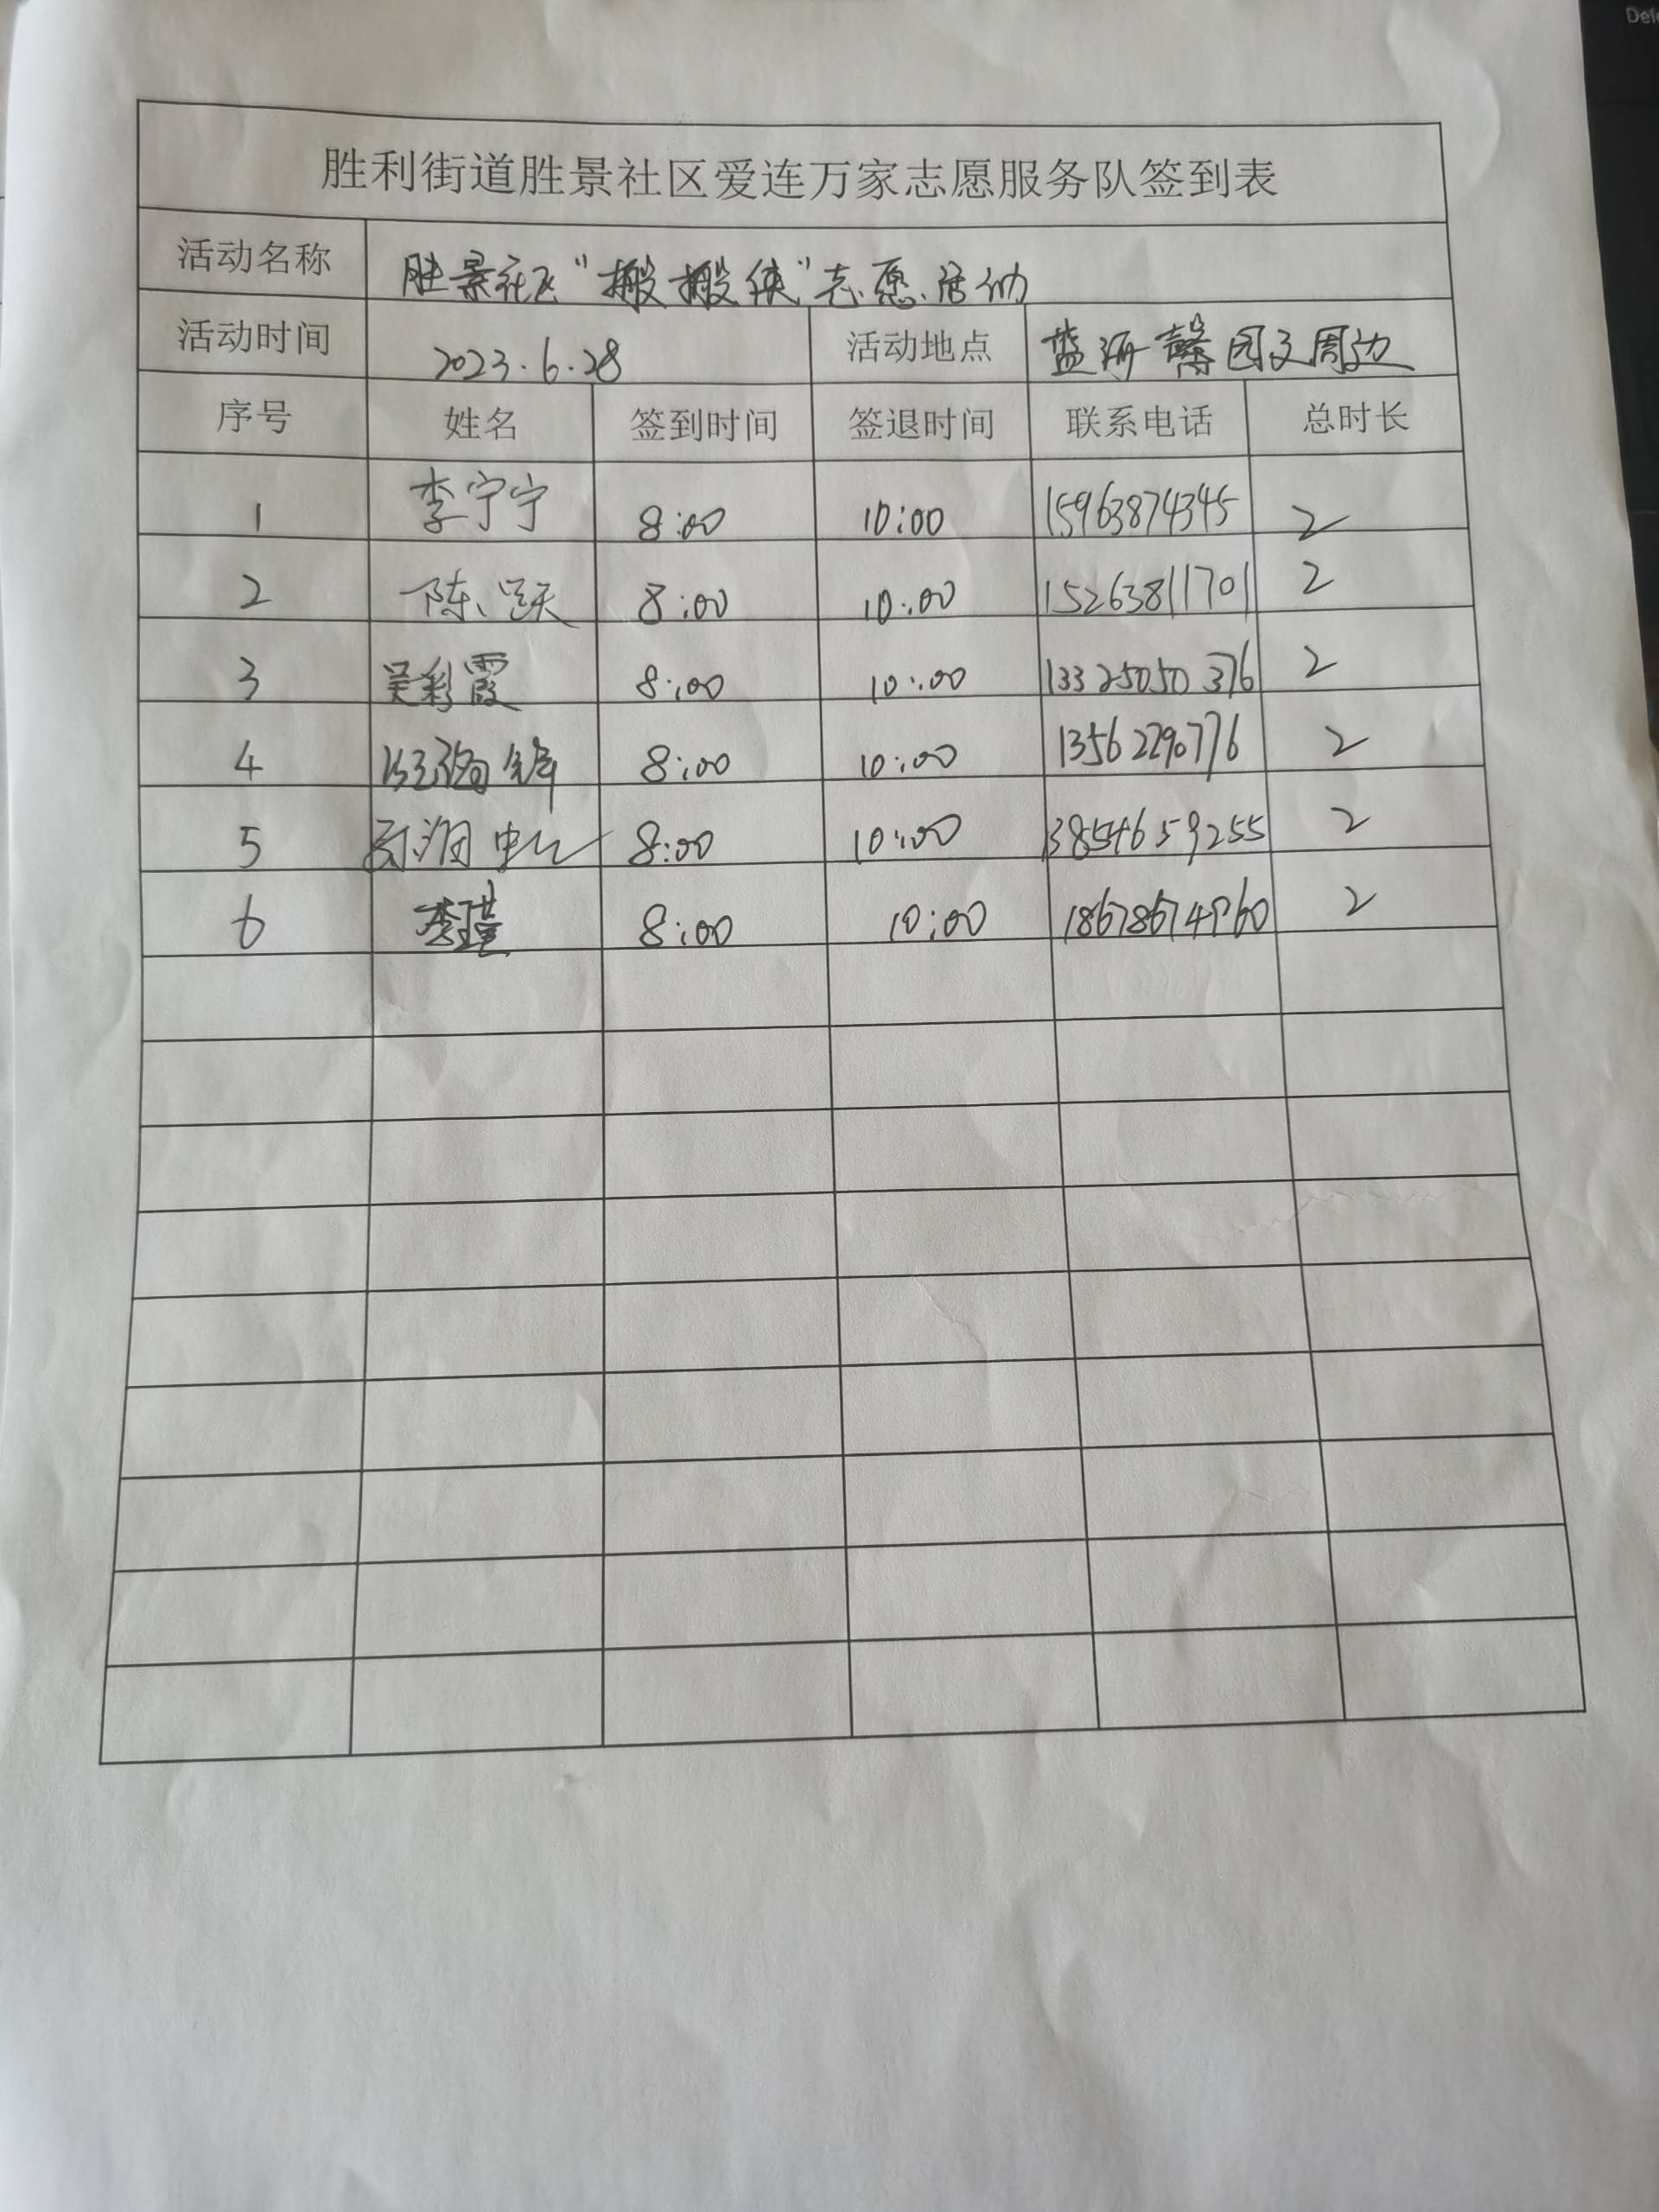 胜利街道胜景社区爱连万家志愿服务队签到表
活动名称 胜景社区“搬搬侠”志愿活动
活动时间 2023.6.28 活动地点 蓝海馨园及周边
序号 姓名 签到时间 签退时间 联系电话 总时长
1 李宁宁 8:00 10:00 15963874345 2
2 陈跃 8:00 10:00 15263811701 2
3 吴彩霞 8:00 10:00 13325050376 2
4 8:00 10:00 13562290776 2
5 8:00 10:00 13854659255 2
6 李瑾 8:00 10:00 18678674960 2